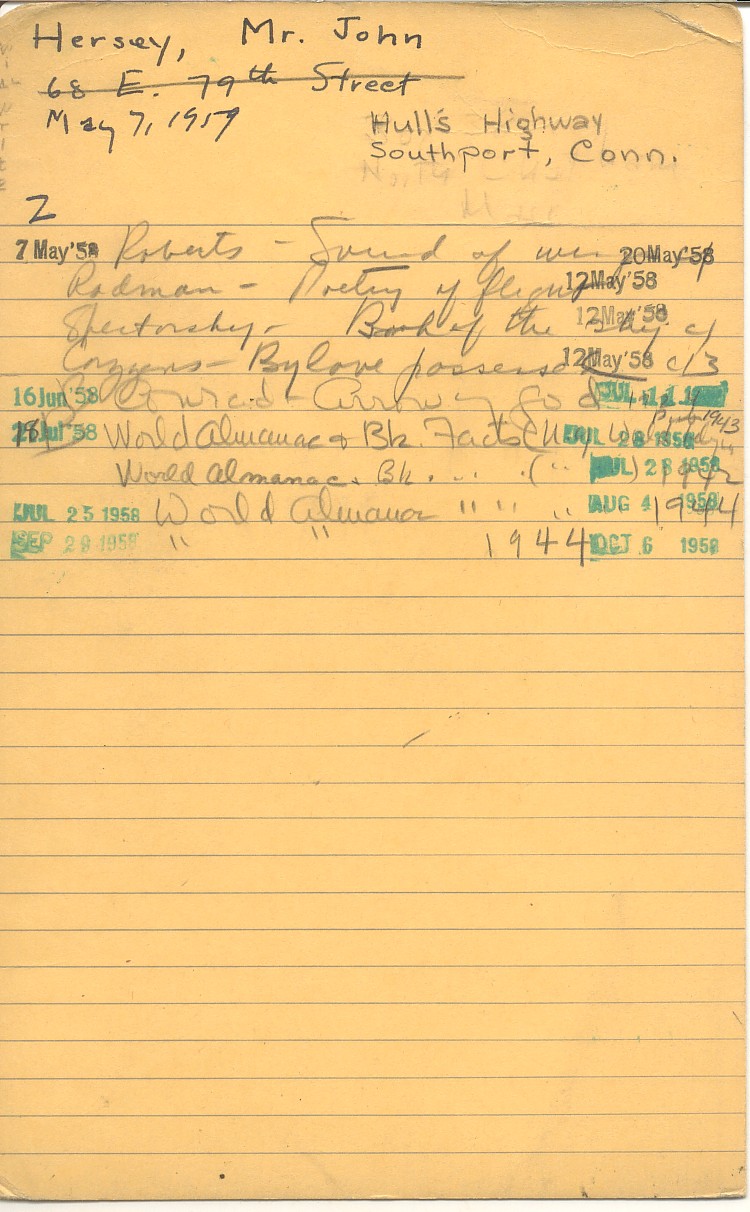 Hersey, Mr. John
68 E. 79th Street
May 7, 1959
Hull's Highway
Southport, Conn.
2
7 May '58 Roberts - Sound of 20 May '58
Rodman - Poetry of flight 12 May '58
Spectorsky - Book of the sky c1 12 May '58
Cozzens - By love possessed 12 May '58 c13
16 Jun '58 Conrad - Arrow of gold JUL 11
18 Jul '58 World Almanac & Bk. Facts (N.Y. JUL 28 1958 pub 1943
World Almanac & Bk. " " (" JUL 28 1958 1942
JUL 25 1958 World Almanac " " " AUG 4 1958 1944
SEP 29 1958 " " 1944 OCT 6 1958